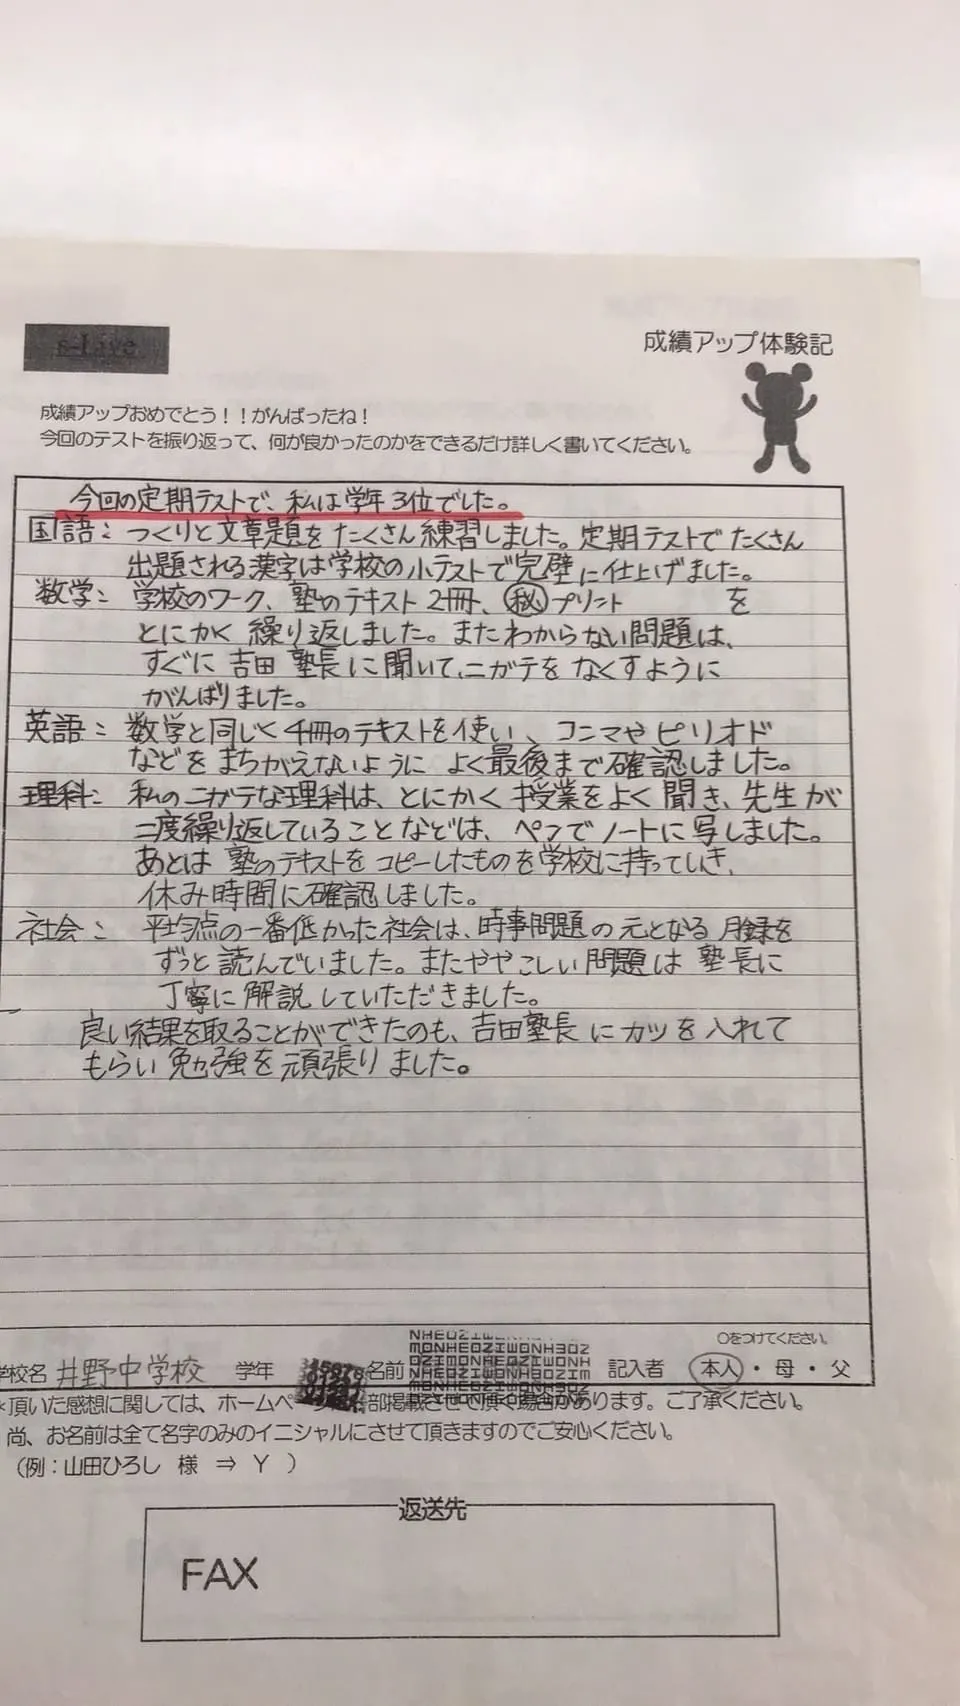 s-Live
成績アップ体験記
成績アップおめでとう！！がんばったね！
今回のテストを振り返って、何が良かったのかをできるだけ詳しく書いてください。
今回の定期テストで、私は学年3位でした。
国語：つくりと文章題をたくさん練習しました。定期テストでたくさん
出題される漢字は学校の小テストで完璧に仕上げました。
数学：学校のワーク、塾のテキスト2冊、㊙プリント を
とにかく繰り返しました。またわからない問題は、
すぐに吉田塾長に聞いて、ニガテをなくすように
がんばりました。
英語：数学と同じく4冊のテキストを使い、コンマやピリオド
などをまちがえないようによく最後まで確認しました。
理科：私のニガテな理科は、とにかく授業をよく聞き、先生が
二度繰り返していることなどは、ペンでノートに写しました。
あとは塾のテキストをコピーしたものを学校に持っていき、
休み時間に確認しました。
社会：平均点の一番低かった社会は、時事問題の元となる月録を
ずっと読んでいました。またややこしい問題は塾長に
丁寧に解説していただきました。
良い結果を取ることができたのも、吉田塾長にカツを入れて
もらい勉強を頑張りました。
○をつけてください。
学校名 井野中学校 学年 名前 記入者 本人・母・父
*頂いた感想に関しては、ホームペ 部掲載させて頂く場合があります。ご了承ください。
尚、お名前は全て名字のみのイニシャルにさせて頂きますのでご安心ください。
（例：山田ひろし 様 ⇒ Y ）
返送先
FAX